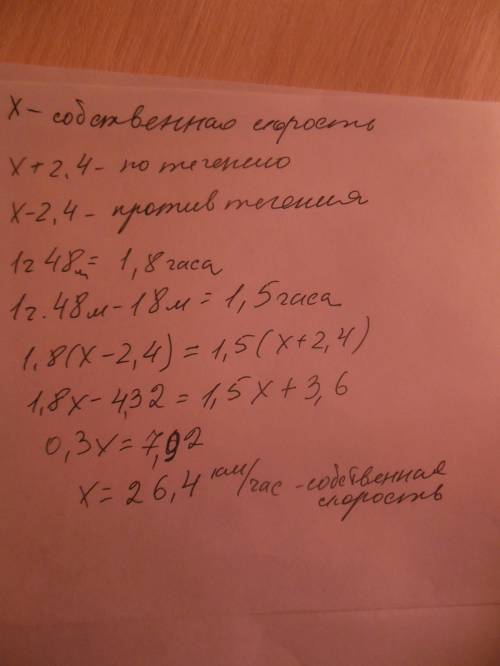 x - собственная скорость
x + 2,4 - по течению
x - 2,4 - против течения
1ч 48м = 1,8 часа
1ч. 48м - 18м = 1,5 часа
1,8(x - 2,4) = 1,5(x + 2,4)
1,8x - 4,32 = 1,5x + 3,6
0,3x = 7,92
x = 26,4 км/час - собственная
скорость